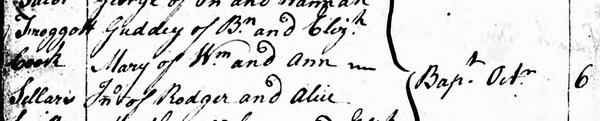 George of Jn and Hannah
Froggott Guddey of Bn. and Elizh.
Cook Mary of Wm and Ann
Sellars Jno. of Rodger and Alice
Bapt. Octr 6